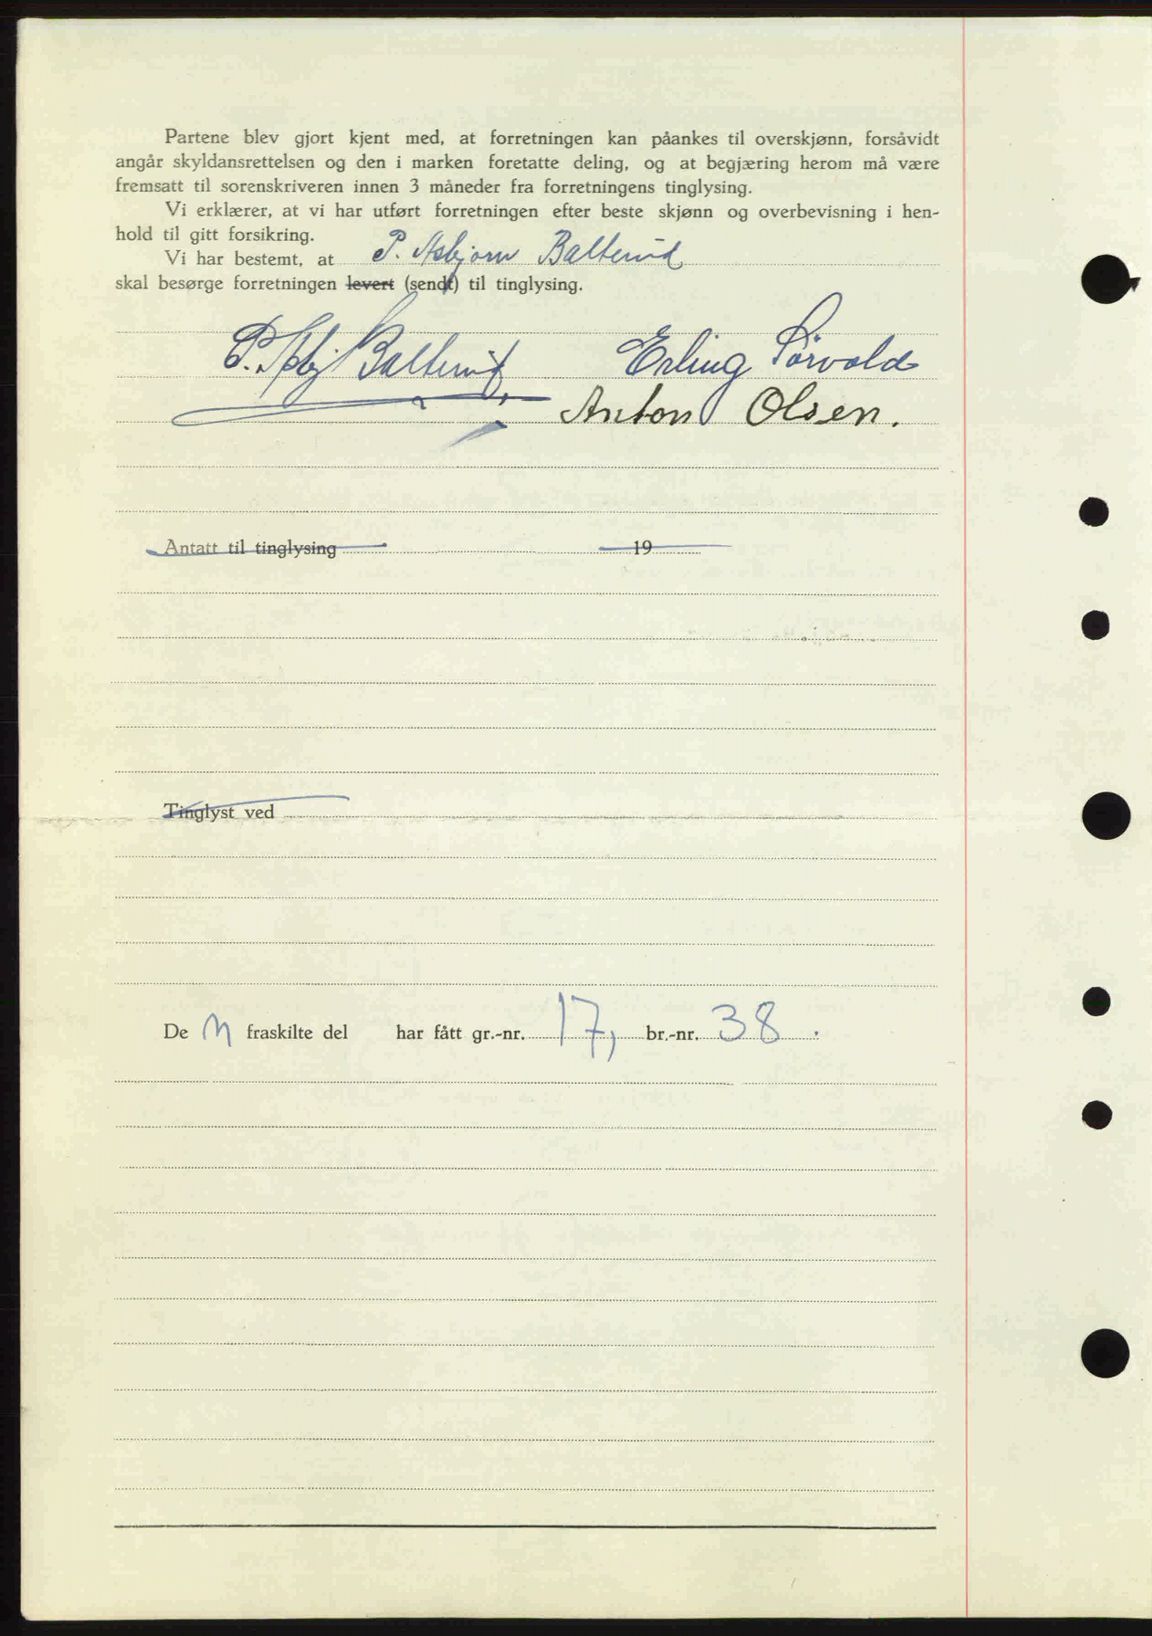 Partene blev gjort kjent med, at forretningen kan påankes til overskjønn, forsåvidt
angår skyldansrettelsen og den i marken foretatte deling, og at begjæring herom må være
fremsatt til sorenskriveren innen 3 måneder fra forretningens tinglysing.
Vi erklærer, at vi har utført forretningen efter beste skjønn og overbevisning i hen-
hold til gitt forsikring.
Vi har bestemt, at P. Asbjørn Balterud
skal besørge forretningen levert (sendt) til tinglysing.
P. Asbj Balterud. Erling Sørvold
Anton Olsen.
Antatt til tinglysing 19
Tinglyst ved
De n fraskilte del har fått gr.-nr. 17, br.-nr. 38.